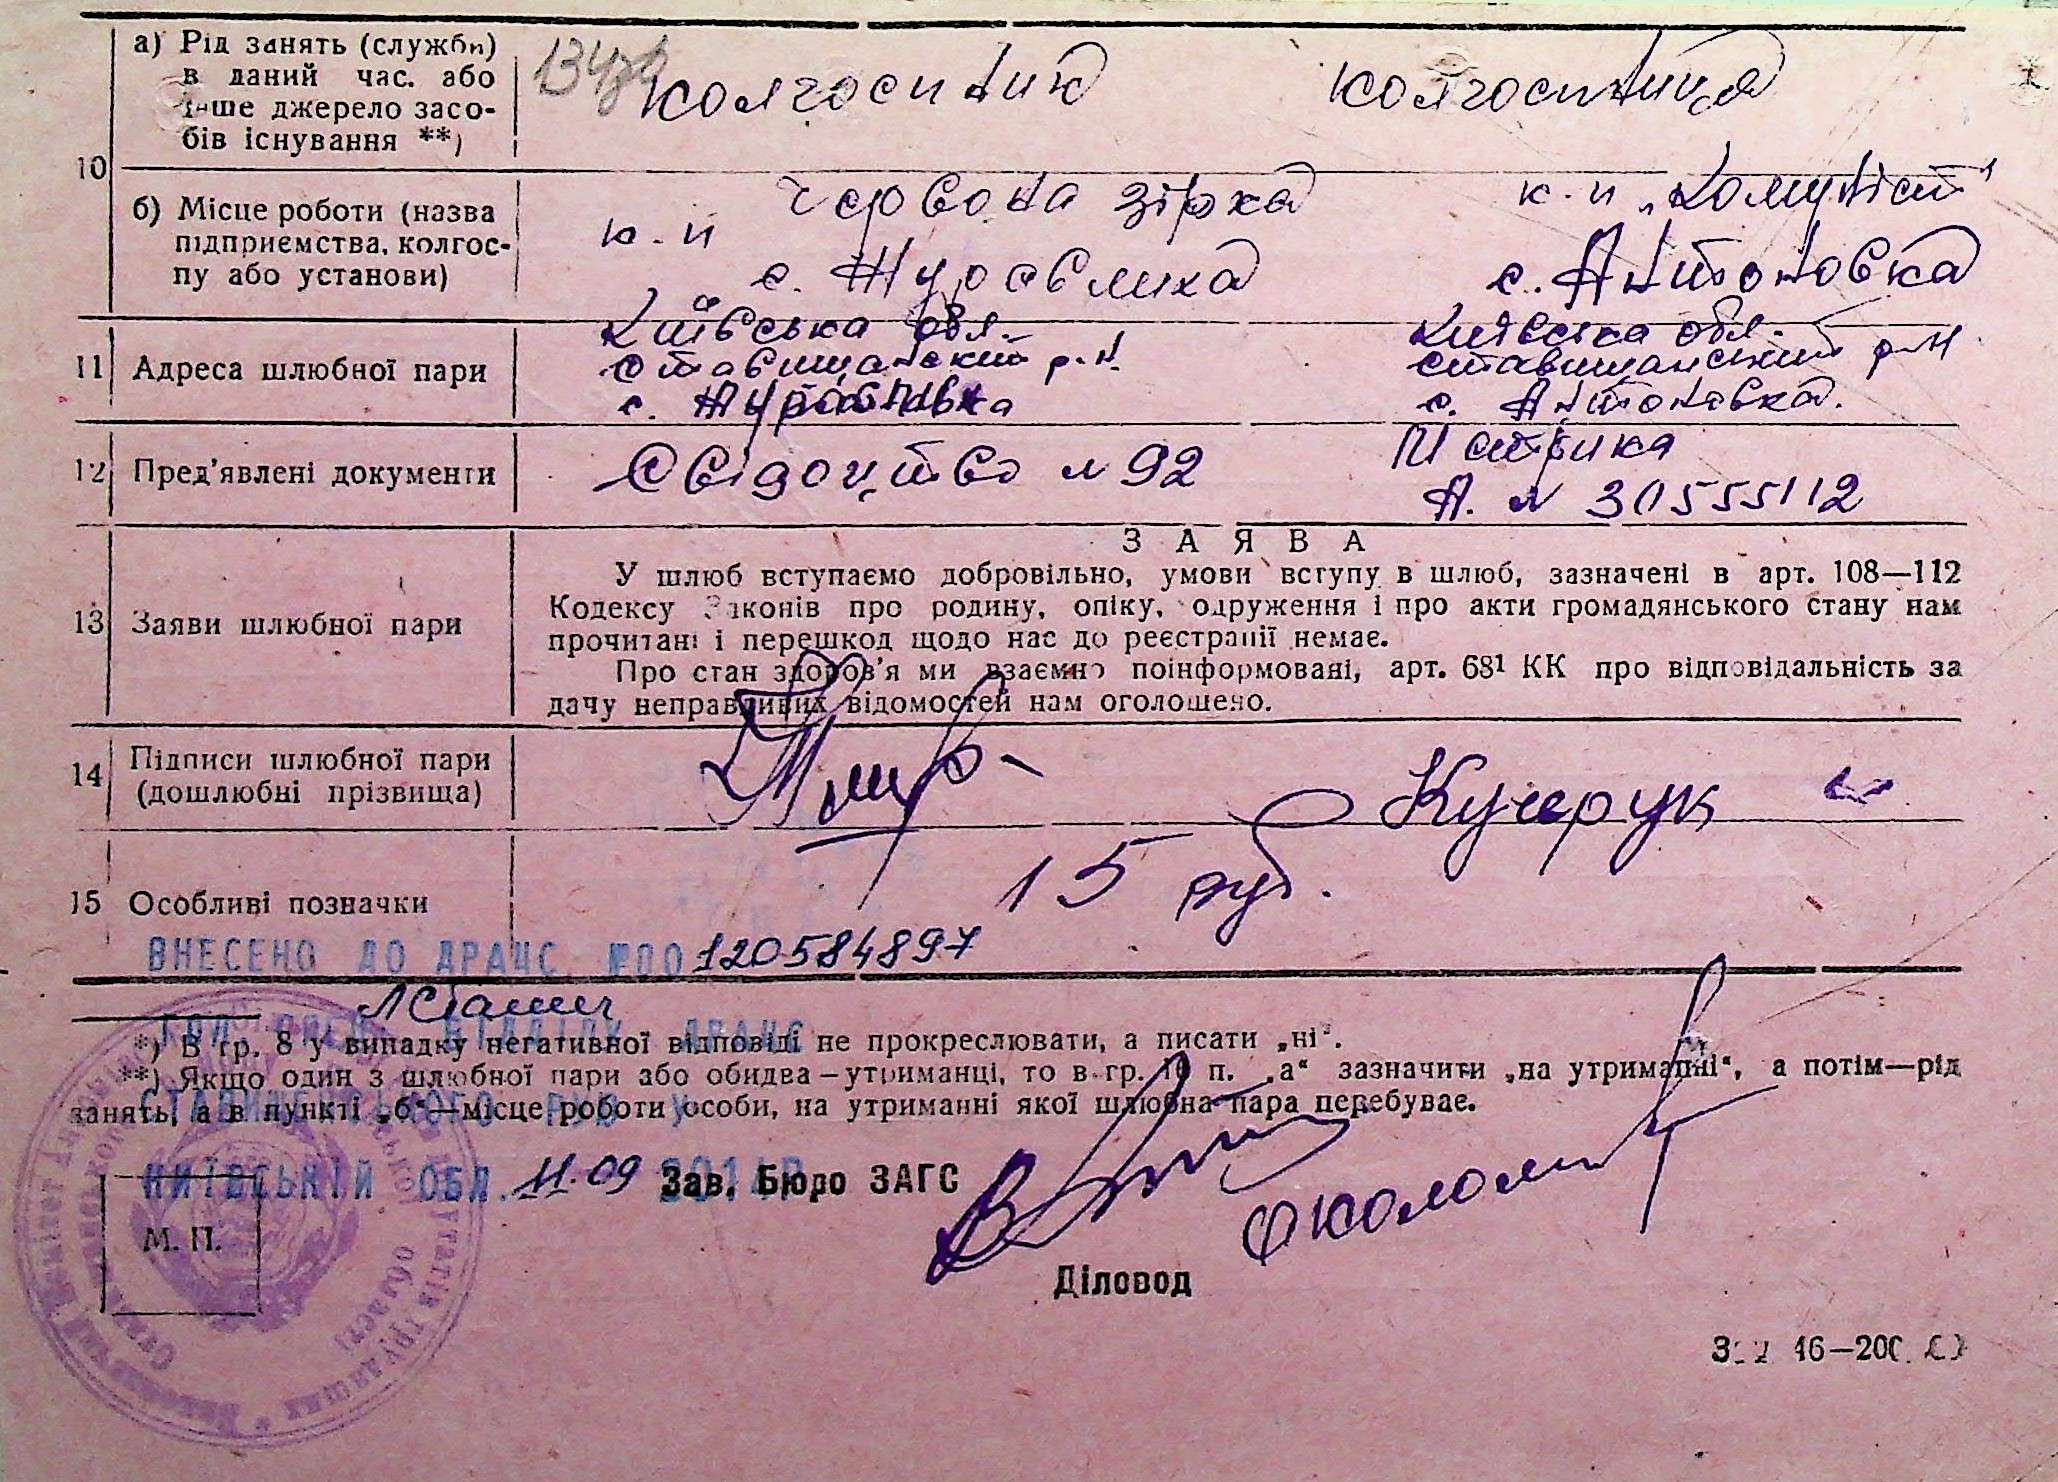 10
а) Рід занять (служби)
в даний час. або
інше джерело засо-
бів існування **)
колгоспник
колгоспниця
б) Місце роботи (назва
підприємства, колгос-
пу або установи)
к-п
Червона зірка
с. Журавлиха
к-п „Комуніст"
с. Антоновка
11 Адреса шлюбної пари
Київська обл.
Ставищанський р-н
с.
Київська обл.
Ставищанський р-н
с. Антоновка.
12 Пред'явлені документи
Свідоцтво № 92
Метрика
А. № 30555112
13 Заяви шлюбної пари
ЗАЯВА
У шлюб вступаємо добровільно, умови вступу в шлюб, зазначені в арт. 108—112
Кодексу Законів про родину, опіку, одруження і про акти громадянського стану нам
прочитані і перешкод щодо нас до реєстрації немає.
Про стан здоров'я ми взаємно поінформовані, арт. 68¹ КК про відповідальність за
дачу неправдивих відомостей нам оголошено.
14 Підписи шлюбної пари
(дошлюбні прізвища)
Кучерук
15 Особливі позначки
15 руб.
ВНЕСЕНО ДО ДРАЦС №00120584897
*) В гр. 8 у випадку негативної відповіді не прокреслювати, а писати „ні".
**) Якщо один з шлюбної пари або обидва—утриманці, то в гр. 10 п. „а" зазначити „на утриманні", а потім—рід
занять, а в пункті „б"—місце роботи особи, на утриманні якої шлюбна пара перебуває.
КИЇВСЬКІЙ ОБЛ. 11.09
Зав. Бюро ЗАГС
М. П.
Діловод